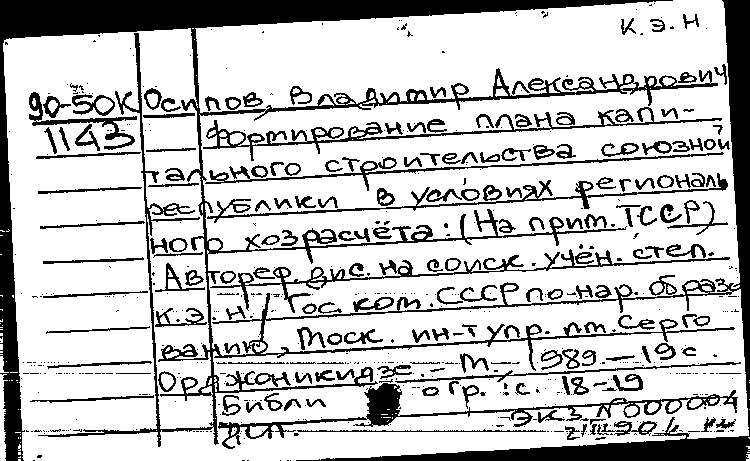 К.Э.Н
90-50К Осипов, Владимир Александрович
1143 Формирование плана капи-
тального строительства союзной
республики в условиях региональ
ного хозрасчёта: (На прим. ТССР)
Автореф. дис. на соиск. учён. степ.
к.э.н. / Гос. ком. СССР по нар. образо
ванию, Моск. ин-т упр. им. Серго
Орджоникидзе. - М., 1989. - 19 с.
Библи огр.: с. 18-19
ДСП. экз. N000004